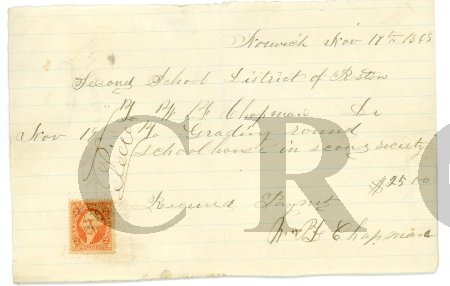 Norwich Nov 19th 1868
Second School District of Preston
To Wm F Chapman Dr
Nov 19 To Grading round
schoolhouse in second society
$25.00
Received Paymt
Wm F Chapman
CRC